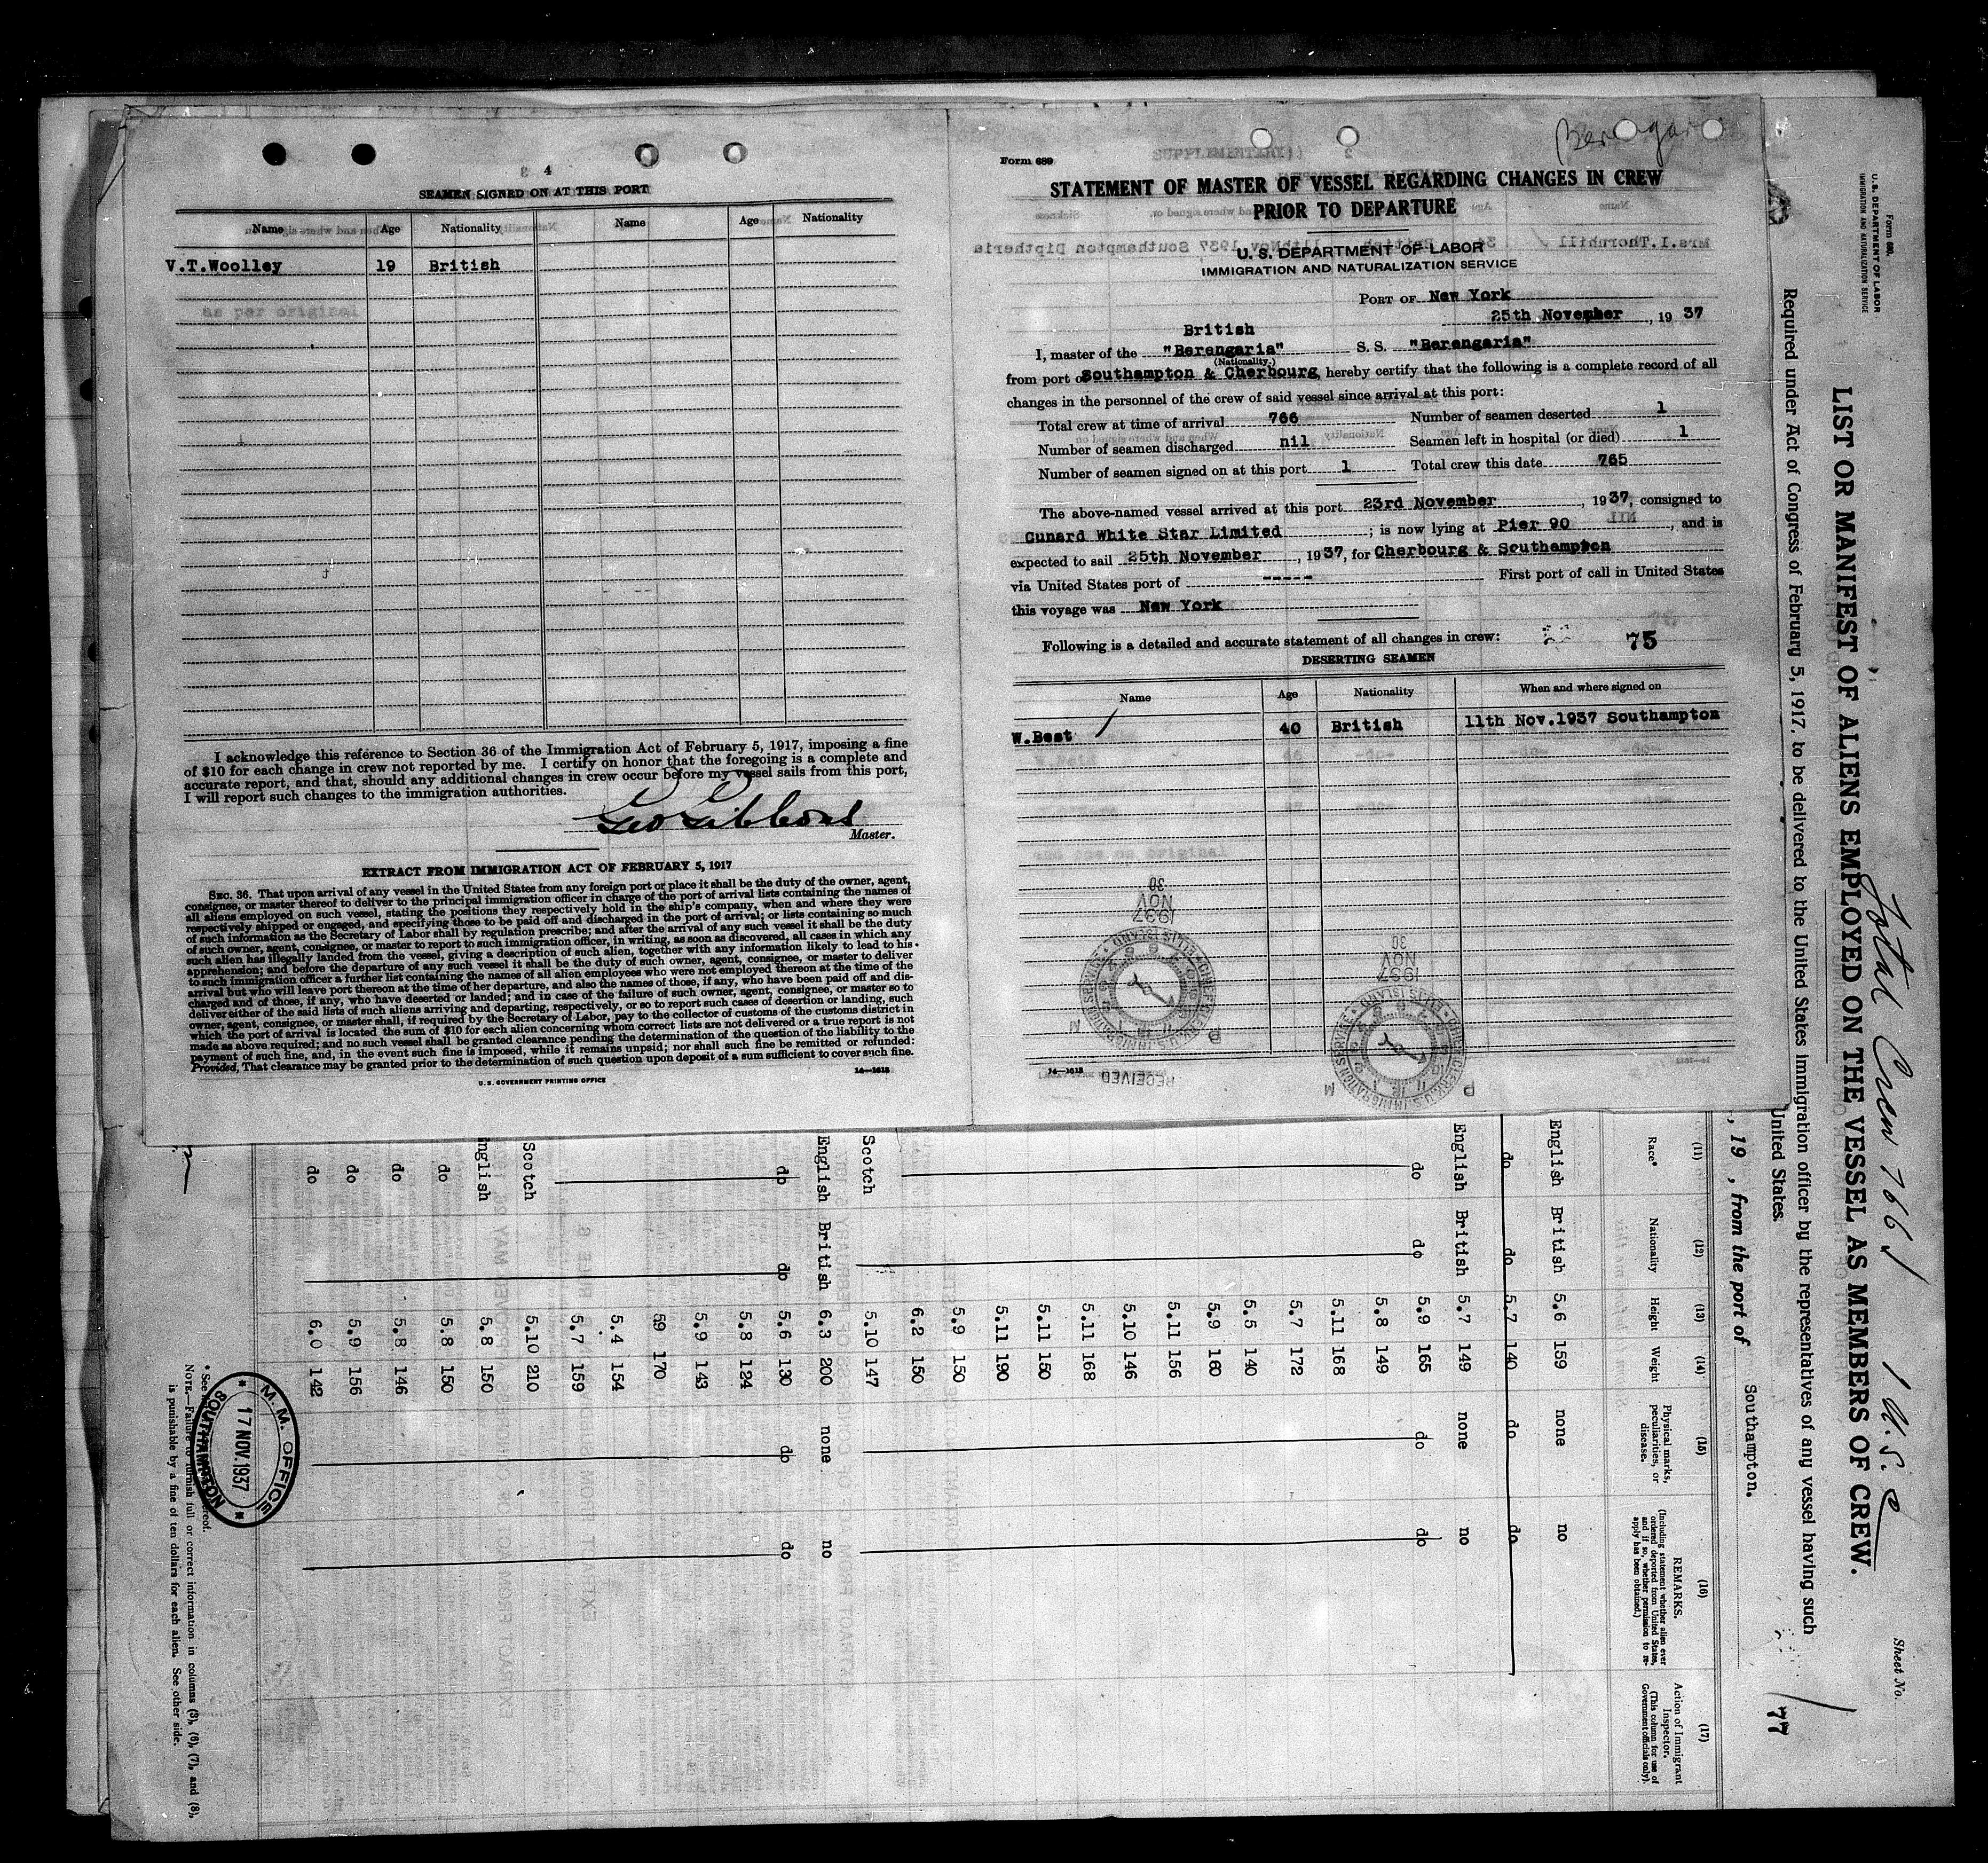 4
SEAMEN SIGNED ON AT THIS PORT
Name Age Nationality Name Age Nationality
V.T.Woolley 19 British
as per original
I acknowledge this reference to Section 36 of the Immigration Act of February 5, 1917, imposing a fine
of $10 for each change in crew not reported by me. I certify on honor that the foregoing is a complete and
accurate report, and that, should any additional changes in crew occur before my vessel sails from this port,
I will report such changes to the immigration authorities.
Geo Gibbons
Master.
EXTRACT FROM IMMIGRATION ACT OF FEBRUARY 5, 1917
SEC. 36. That upon arrival of any vessel in the United States from any foreign port or place it shall be the duty of the owner, agent,
consignee, or master thereof to deliver to the principal immigration officer in charge of the port of arrival lists containing the names of
all aliens employed on such vessel, stating the positions they respectively hold in the ship's company, when and where they were
respectively shipped or engaged, and specifying those to be paid off and discharged in the port of arrival; or lists containing so much
of such information as the Secretary of Labor shall by regulation prescribe; and after the arrival of any such vessel it shall be the duty
of such owner, agent, consignee, or master to report to such immigration officer, in writing, as soon as discovered, all cases in which any
such alien has illegally landed from the vessel, giving a description of such alien, together with any information likely to lead to his
apprehension; and before the departure of any such vessel it shall be the duty of such owner, agent, consignee, or master to deliver
to such immigration officer a further list containing the names of all alien employees who were not employed thereon at the time of the
arrival but who will leave port thereon at the time of her departure, and also the names of those, if any, who have been paid off and dis-
charged and of those, if any, who have deserted or landed; and in case of the failure of such owner, agent, consignee, or master so to
deliver either of the said lists of such aliens arriving and departing, respectively, or so to report such cases of desertion or landing, such
owner, agent, consignee, or master shall, if required by the Secretary of Labor, pay to the collector of customs of the customs district in
which the port of arrival is located the sum of $10 for each alien concerning whom correct lists are not delivered or a true report is not
made as above required; and no such vessel shall be granted clearance pending the determination of the question of the liability to the
payment of such fine, and, in the event such fine is imposed, while it remains unpaid; nor shall such fine be remitted or refunded:
Provided, That clearance may be granted prior to the determination of such question upon deposit of a sum sufficient to cover such fine.
U. S. GOVERNMENT PRINTING OFFICE 14—1613
Berengaria
Form 689
STATEMENT OF MASTER OF VESSEL REGARDING CHANGES IN CREW
PRIOR TO DEPARTURE
U. S. DEPARTMENT OF LABOR
IMMIGRATION AND NATURALIZATION SERVICE
PORT OF New York
25th November, 1937
British
I, master of the "Berengaria" S. S. "Berengaria"
(Nationality.)
from port of Southampton & Cherbourg, hereby certify that the following is a complete record of all
changes in the personnel of the crew of said vessel since arrival at this port:
Total crew at time of arrival 766 Number of seamen deserted 1
Number of seamen discharged nil Seamen left in hospital (or died) 1
Number of seamen signed on at this port 1 Total crew this date 765
The above-named vessel arrived at this port 23rd November, 1937, consigned to
Cunard White Star Limited; is now lying at Pier 90, and is
expected to sail 25th November, 1937, for Cherbourg & Southampton
via United States port of ----- First port of call in United States
this voyage was New York
Following is a detailed and accurate statement of all changes in crew: 75
DESERTING SEAMEN
Name Age Nationality When and where signed on
W.Best 40 British 11th Nov.1937 Southampton
1937
NOV
30
1937
NOV
30
RECEIVED
14—1613
Form 680.
U. S. DEPARTMENT OF LABOR
IMMIGRATION AND NATURALIZATION SERVICE
Total Crew 766
1 U.S.C
Sheet No. 1
LIST OR MANIFEST OF ALIENS EMPLOYED ON THE VESSEL AS MEMBERS OF CREW.
Required under Act of Congress of February 5, 1917, to be delivered to the United States immigration officer by the representatives of any vessel having such
United States.
77
, 19 , from the port of Southampton.
(11) (12) (13) (14) (15) (16) (17)
Race* Nationality Height Weight Physical marks, peculiarities, or disease. REMARKS. (Including statement whether alien ever ordered deported from United States, and if so, whether permission to re-apply has been obtained.) Action of Immigrant Inspector. (This column for use of Government officials only).
English British 5.6 159 none no
do do 5.7 140 do do
English British 5.7 149 none no
do do 5.9 165 do do
5.8 149
5.11 168
5.7 172
5.5 140
5.9 160
5.11 156
5.10 146
5.11 168
5.11 150
5.11 190
5.9 150
6.2 150
Scotch 5.10 147
English British 6.3 200 none no
do do 5.6 130 do do
5.8 124
5.9 143
59 170
5.4 154
5.7 159
Scotch 5.10 210
English 5.8 150
do 5.8 150
do 5.8 146
do 5.9 156
do 6.0 142
* See hereof.
NOTE.—Failure to furnish full or correct information in columns (3), (6), (7), and (8),
is punishable by a fine of ten dollars for each alien. See other side.
M. M. OFFICE
17 NOV. 1937
SOUTHAMPTON